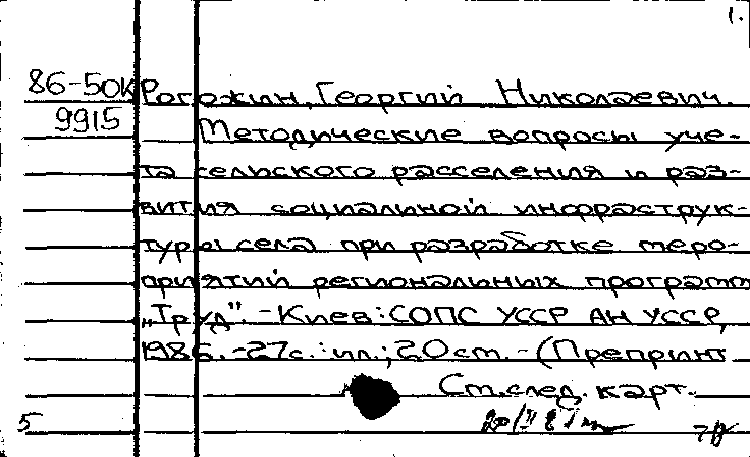 1.
86-50к Рогожин, Георгий Николаевич
9915 Методические вопросы уче-
та сельского расселения и раз-
вития социальной инфраструк-
туры села при разработке меро-
приятий региональных программ
„Труд". - Киев: СОПС УССР АН УССР,
1986. - 27с.: ил.; 20 см. - (Препринт
См. след. карт.
5